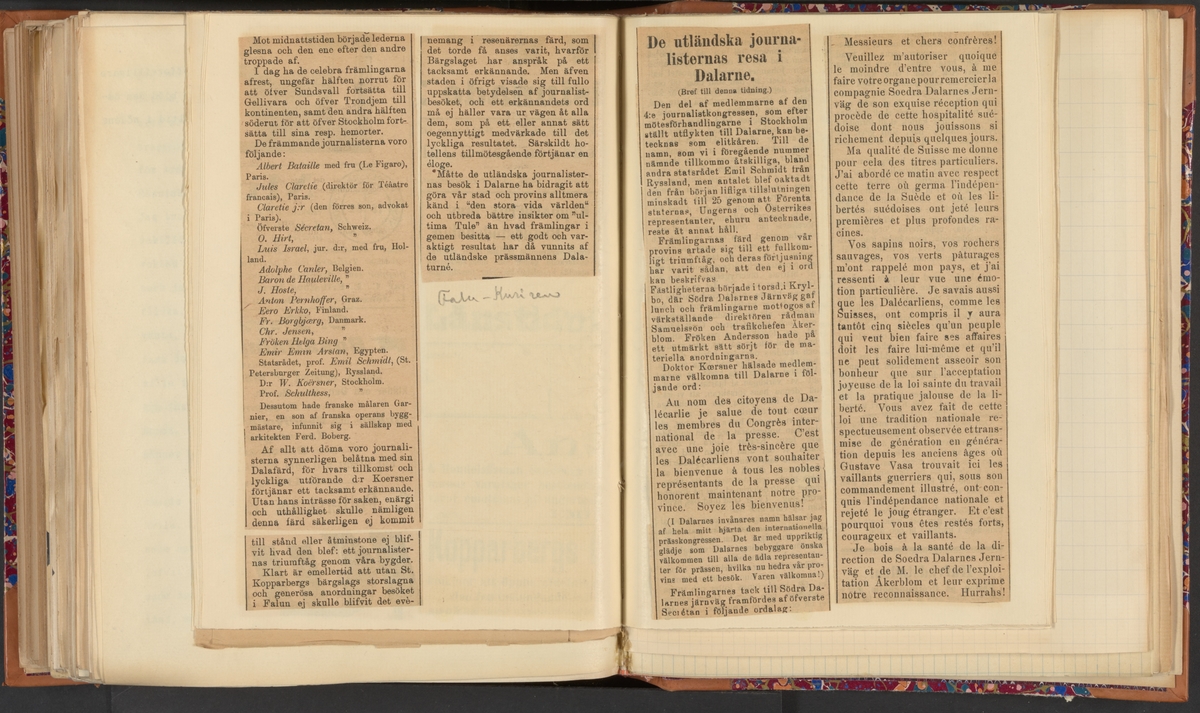 Mot midnattstiden började lederna
glesna och den ene efter den andre
troppade af.
I dag ha de celebra främlingarna
afrest, ungefär hälften norrut för
att öfver Sundsvall fortsätta till
Gellivara och öfver Trondjem till
kontinenten, samt den andra hälften
söderut för att öfver Stockholm fort-
sätta till sina resp. hemorter.
De främmande journalisterna voro
följande:
Albert Bataille med fru (Le Figaro),
Paris.
Jules Claretie (direktör för Téâatre
francais), Paris.
Claretie j:r (den förres son, advokat
i Paris).
Öfverste Sécretan, Schweiz.
O. Hirt, "
Luis Israel, jur. d:r, med fru, Hol-
land.
Adolphe Canler, Belgien.
Baron de Hauleville, "
J. Hoste, "
Anton Pernhoffer, Graz.
Eero Erkko, Finland.
Fr. Borgbjærg, Danmark.
Chr. Jensen, "
Fröken Helga Bing "
Emir Emin Arslan, Egypten.
Statsrådet, prof. Emil Schmidt, (St.
Petersburger Zeitung), Ryssland.
D:r W. Koërsner, Stockholm.
Prof. Schulthess, "
Dessutom hade franske målaren Gar-
nier, en son af franska operans bygg-
mästare, infunnit sig i sällskap med
arkitekten Ferd. Boberg.
Af allt att döma voro journali-
sterna synnerligen belåtna med sin
Dalafärd, för hvars tillkomst och
lyckliga utförande d:r Koersner
förtjänar ett tacksamt erkännande.
Utan hans inträsse för saken, enärgi
och uthållighet skulle nämligen
denna färd säkerligen ej kommit
till stånd eller åtminstone ej blif-
vit hvad den blef: ett journalister-
nas triumftåg genom våra bygder.
Klart är emellertid att utan St.
Kopparbergs bärgslags storslagna
och generösa anordningar besöket
i Falun ej skulle blifvit det evè-
nemang i resenärernas färd, som
det torde få anses varit, hvarför
Bärgslaget har anspråk på ett
tacksamt erkännande. Men äfven
staden i öfrigt visade sig till fullo
uppskatta betydelsen af journalist-
besöket, och ett erkännandets ord
må ej håller vara ur vägen åt alla
dem, som på ett eller annat sätt
oegennyttigt medvärkade till det
lyckliga resultatet. Särskildt ho-
tellens tillmötesgående förtjänar en
eloge.
Måtte de utländska journalister-
nas besök i Dalarne ha bidragit att
göra vår stad och provins alltmera
känd i "den stora vida världen"
och utbreda bättre insikter om "ul-
tima Tule" än hvad främlingar i
gemen besitta — ett godt och var-
aktigt resultat har då vunnits af
de utländske prässmännens Dala-
turné.
Falu-Kuriren
De utländska journa-
listernas resa i
Dalarne.
(Bref till denna tidning.)
Den del af medlemmarne af den
4:e journalistkongressen, som efter
mötesförhandlingarne i Stockholm
ställt utflykten till Dalarne, kan be-
tecknas som elitkåren. Till de
namn, som vi i föregående nummer
nämnde tillkommo åtskilliga, bland
andra statsrådet Emil Schmidt från
Ryssland, men antalet blef oaktadt
den från början lifliga tillslutningen
minskadt till 25 genom att Förenta
staternas, Ungerns och Österrikes
representanter, ehuru antecknade,
reste åt annat håll.
Främlingarnas färd genom vår
provins artade sig till ett fullkom-
ligt triumftåg, och deras förtjusning
har varit sådan, att den ej i ord
kan beskrifvas
Fästligheterna började i torsd. i Kryl-
bo, där Södra Dalarnes Järnväg gaf
lunch och främlingarne mottogos af
värkställande direktören rådman
Samuelsson och trafikchefen Åker-
blom. Fröken Andersson hade på
ett utmärkt sätt sörjt för de ma-
teriella anordningarna.
Doktor Kœrsner hälsade medlem-
marne välkomna till Dalarne i föl-
jande ord:
Au nom des citoyens de Da-
lécarlie je salue de tout cœur
les membres du Congrès inter-
national de la presse. C'est
avec une joie très-sincère que
les Dalécarliens vont souhaiter
la bienvenue à tous les nobles
représentants de la presse qui
honorent maintenant notre pro-
vince. Soyez les bienvenus!
(I Dalarnes invånares namn hälsar jag
af hela mitt hjärta den internationella
prässkongressen. Det är med uppriktig
glädje som Dalarnes bebyggare önska
välkommen till alla de ädla representan-
ter för prässen, hvilka nu hedra vår pro-
vins med ett besök. Varen välkomna!)
Främlingarnes tack till Södra Da-
larnes järnväg framfördes af öfverste
Secrétan i följande ordalag:
Messieurs et chers confrères!
Veuillez m'autoriser quoique
le moindre d'entre vous, à me
faire votre organe pour remercier la
compagnie Soedra Dalarnes Jern-
väg de son exquise réception qui
procède de cette hospitalité sué-
doise dont nous jouissons si
richement depuis quelques jours.
Ma qualité de Suisse me donne
pour cela des titres particuliers.
J'ai abordé ce matin avec respect
cette terre où germa l'indépen-
dance de la Suède et où les li-
bertés suédoises ont jeté leurs
premières et plus profondes ra-
cines.
Vos sapins noirs, vos rochers
sauvages, vos verts pâturages
m'ont rappelé mon pays, et j'ai
ressenti à leur vue une émo-
tion particulière. Je savais aussi
que les Dalécarliens, comme les
Suisses, ont compris il y aura
tantôt cinq siècles qu'un peuple
qui veut bien faire ses affaires
doit les faire lui-même et qu'il
ne peut solidement asseoir son
bonheur que sur l'acceptation
joyeuse de la loi sainte du travail
et la pratique jalouse de la li-
berté. Vous avez fait de cette
loi une tradition nationale re-
spectueusement observée et trans-
mise de génération en généra-
tion depuis les anciens âges où
Gustave Vasa trouvait ici les
vaillants guerriers qui, sous son
commandement illustré, ont con-
quis l'indépendance nationale et
rejeté le joug étranger. Et c'est
pourquoi vous êtes restés forts,
courageux et vaillants.
Je bois à la santé de la di-
rection de Soedra Dalarnes Jern-
väg et de M. le chef de l'exploi-
tation Åkerblom et leur exprime
notre reconnaissance. Hurrahs!